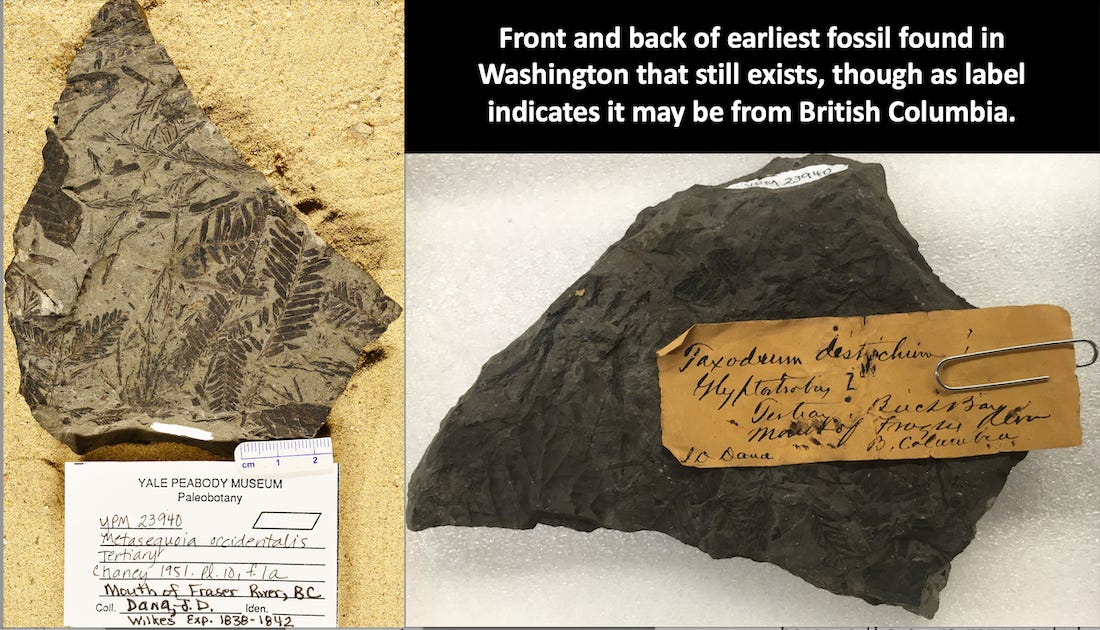 Front and back of earliest fossil found in
Washington that still exists, though as label
indicates it may be from British Columbia.
YPM 23940
Taxodium distichum !
Glyptostrobus ?
Tertiary. Birch Bay
Mouth of Frazer River
B. Columbia
J D Dana
cm 1 2
YALE PEABODY MUSEUM
Paleobotany
YPM 23940
Metasequoia occidentalis
Tertiary
Chaney 1951. pl. 10, f. 1a
Mouth of Fraser River, BC
Coll. Dana, J.D. Iden.
Wilkes Exp. 1838-1842